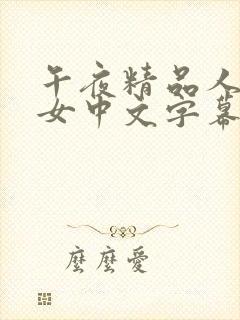 午夜精品人
女中文字幕
麼麼愛